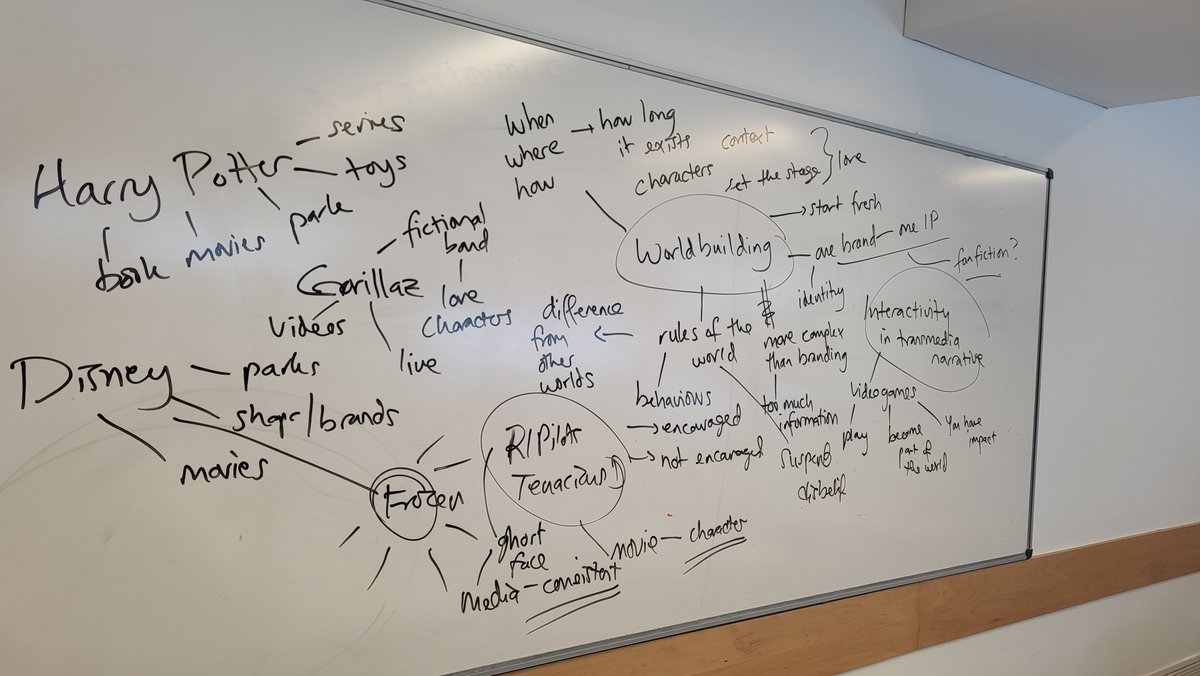 Harry Potter
series
toys
park
movies
book
Gorillaz
fictional
band
love
characters
videos
live
Disney
parks
shops/brands
movies
Frozen
when
where
how
how long
it exists
context
characters
set the stage
love
Worldbuilding
start fresh
one brand
one IP
fanfiction?
identity
more complex
than branding
too much
information
rules of the
world
difference
from
other
worlds
behaviours
encouraged
not encouraged
suspend
disbelief
Interactivity
in transmedia
narrative
videogames
play
become
part of
the world
You have
impact
Tenacious D
movie
character
face
media
consistent